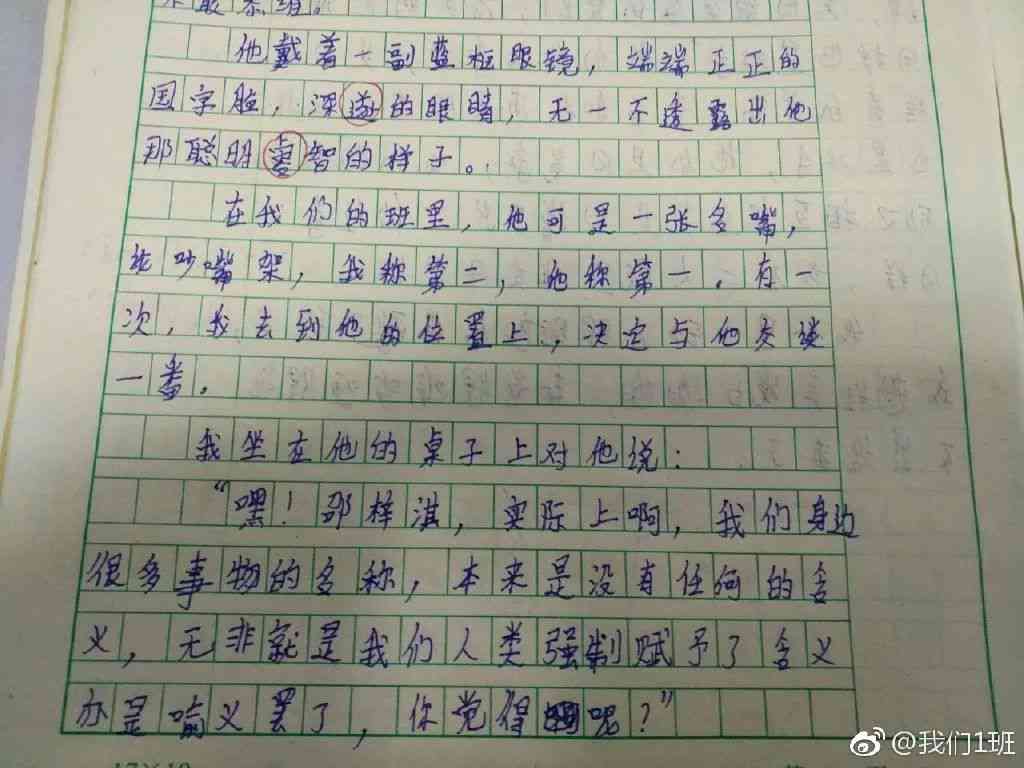 他戴着一副蓝框眼镜，端端正正的
国字脸，深邃的眼睛，无一不透露出他
那聪明睿智的样子。
在我们的班里，他可是一张名嘴，
论吵嘴架，我称第二，他称第一。有一
次，我去到他的位置上，决定与他交谈
一番。
我坐在他的桌子上对他说：
“嘿！邵梓淇，实际上啊，我们身边
很多事物的名称，本来是没有任何的含
义，无非就是我们人类强制赋予了含义
亦是喻义罢了，你觉得呢？”
17×19
@我们1班